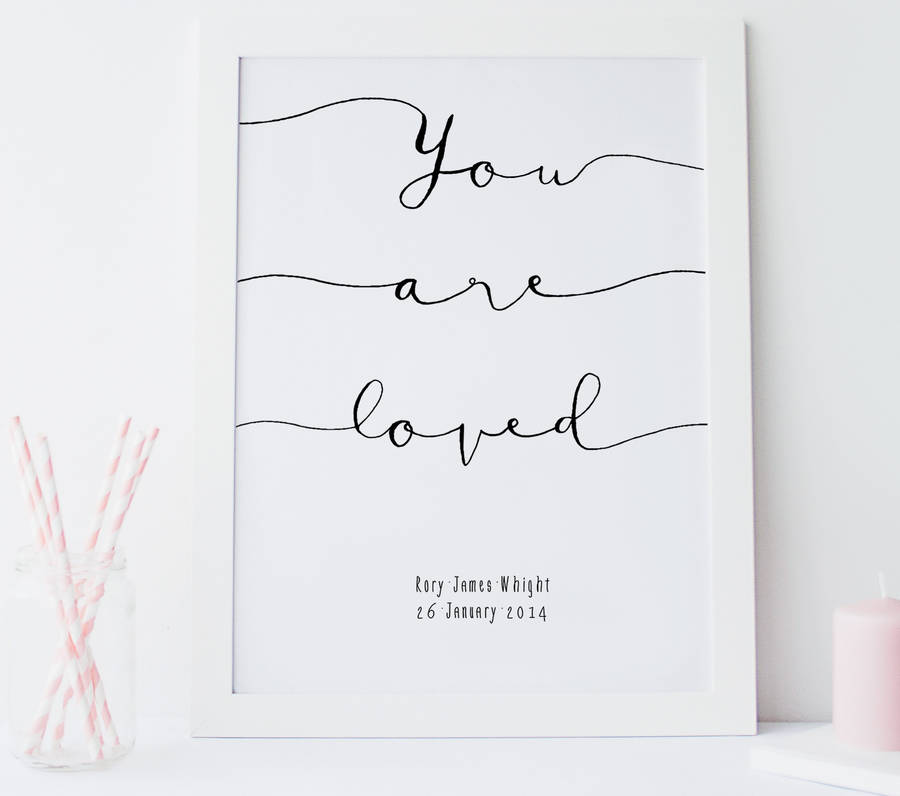 You
are
loved
Rory James Whight
26 January 2014